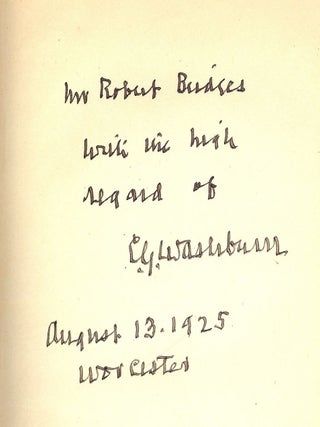 Mr Robert Bridges
With the high
regard of
C.G. Washburn
August 13. 1925
Worcester